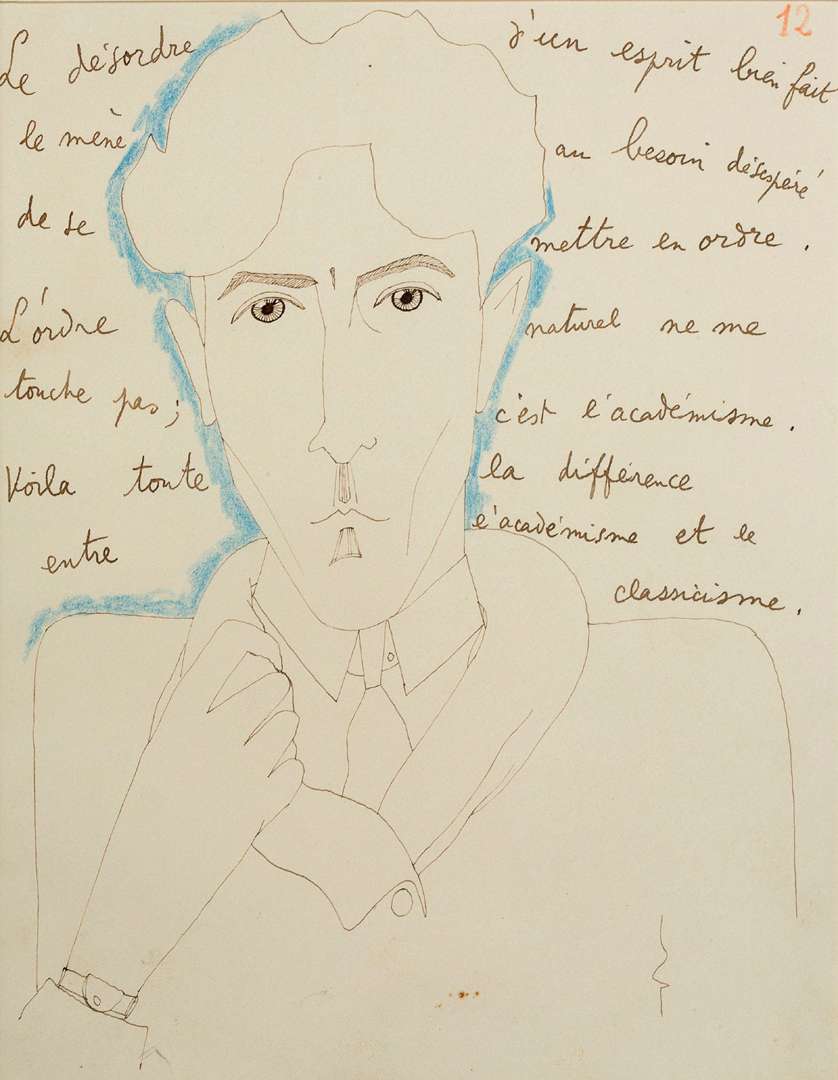 12
Le désordre d'un esprit bien fait
le mène au besoin désespéré
de se mettre en ordre.
L'ordre naturel ne me
touche pas; c'est l'académisme.
Voila toute la différence
entre l'académisme et le
classicisme.